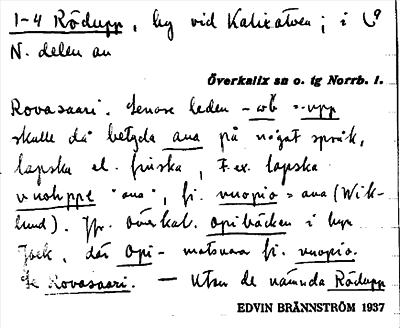 1-4 Rödupp, by vid Kalixälven; i
N. delen av
Överkalix sn o. tg Norrb. l.
Rovasaari. Senare leden -upp
skulle då betyda ava på något språk,
lapska el. finska, t. ex. lapska
vuohppe "ava", fi. vuopio = ava (Wik-
lund). Jfr. Överkal. Opibäcken i byn
där Opi- motsvarar fi. vuopio.
Se Rovasaari. — Utan de nämnda Rödupp
EDVIN BRÄNNSTRÖM 1937